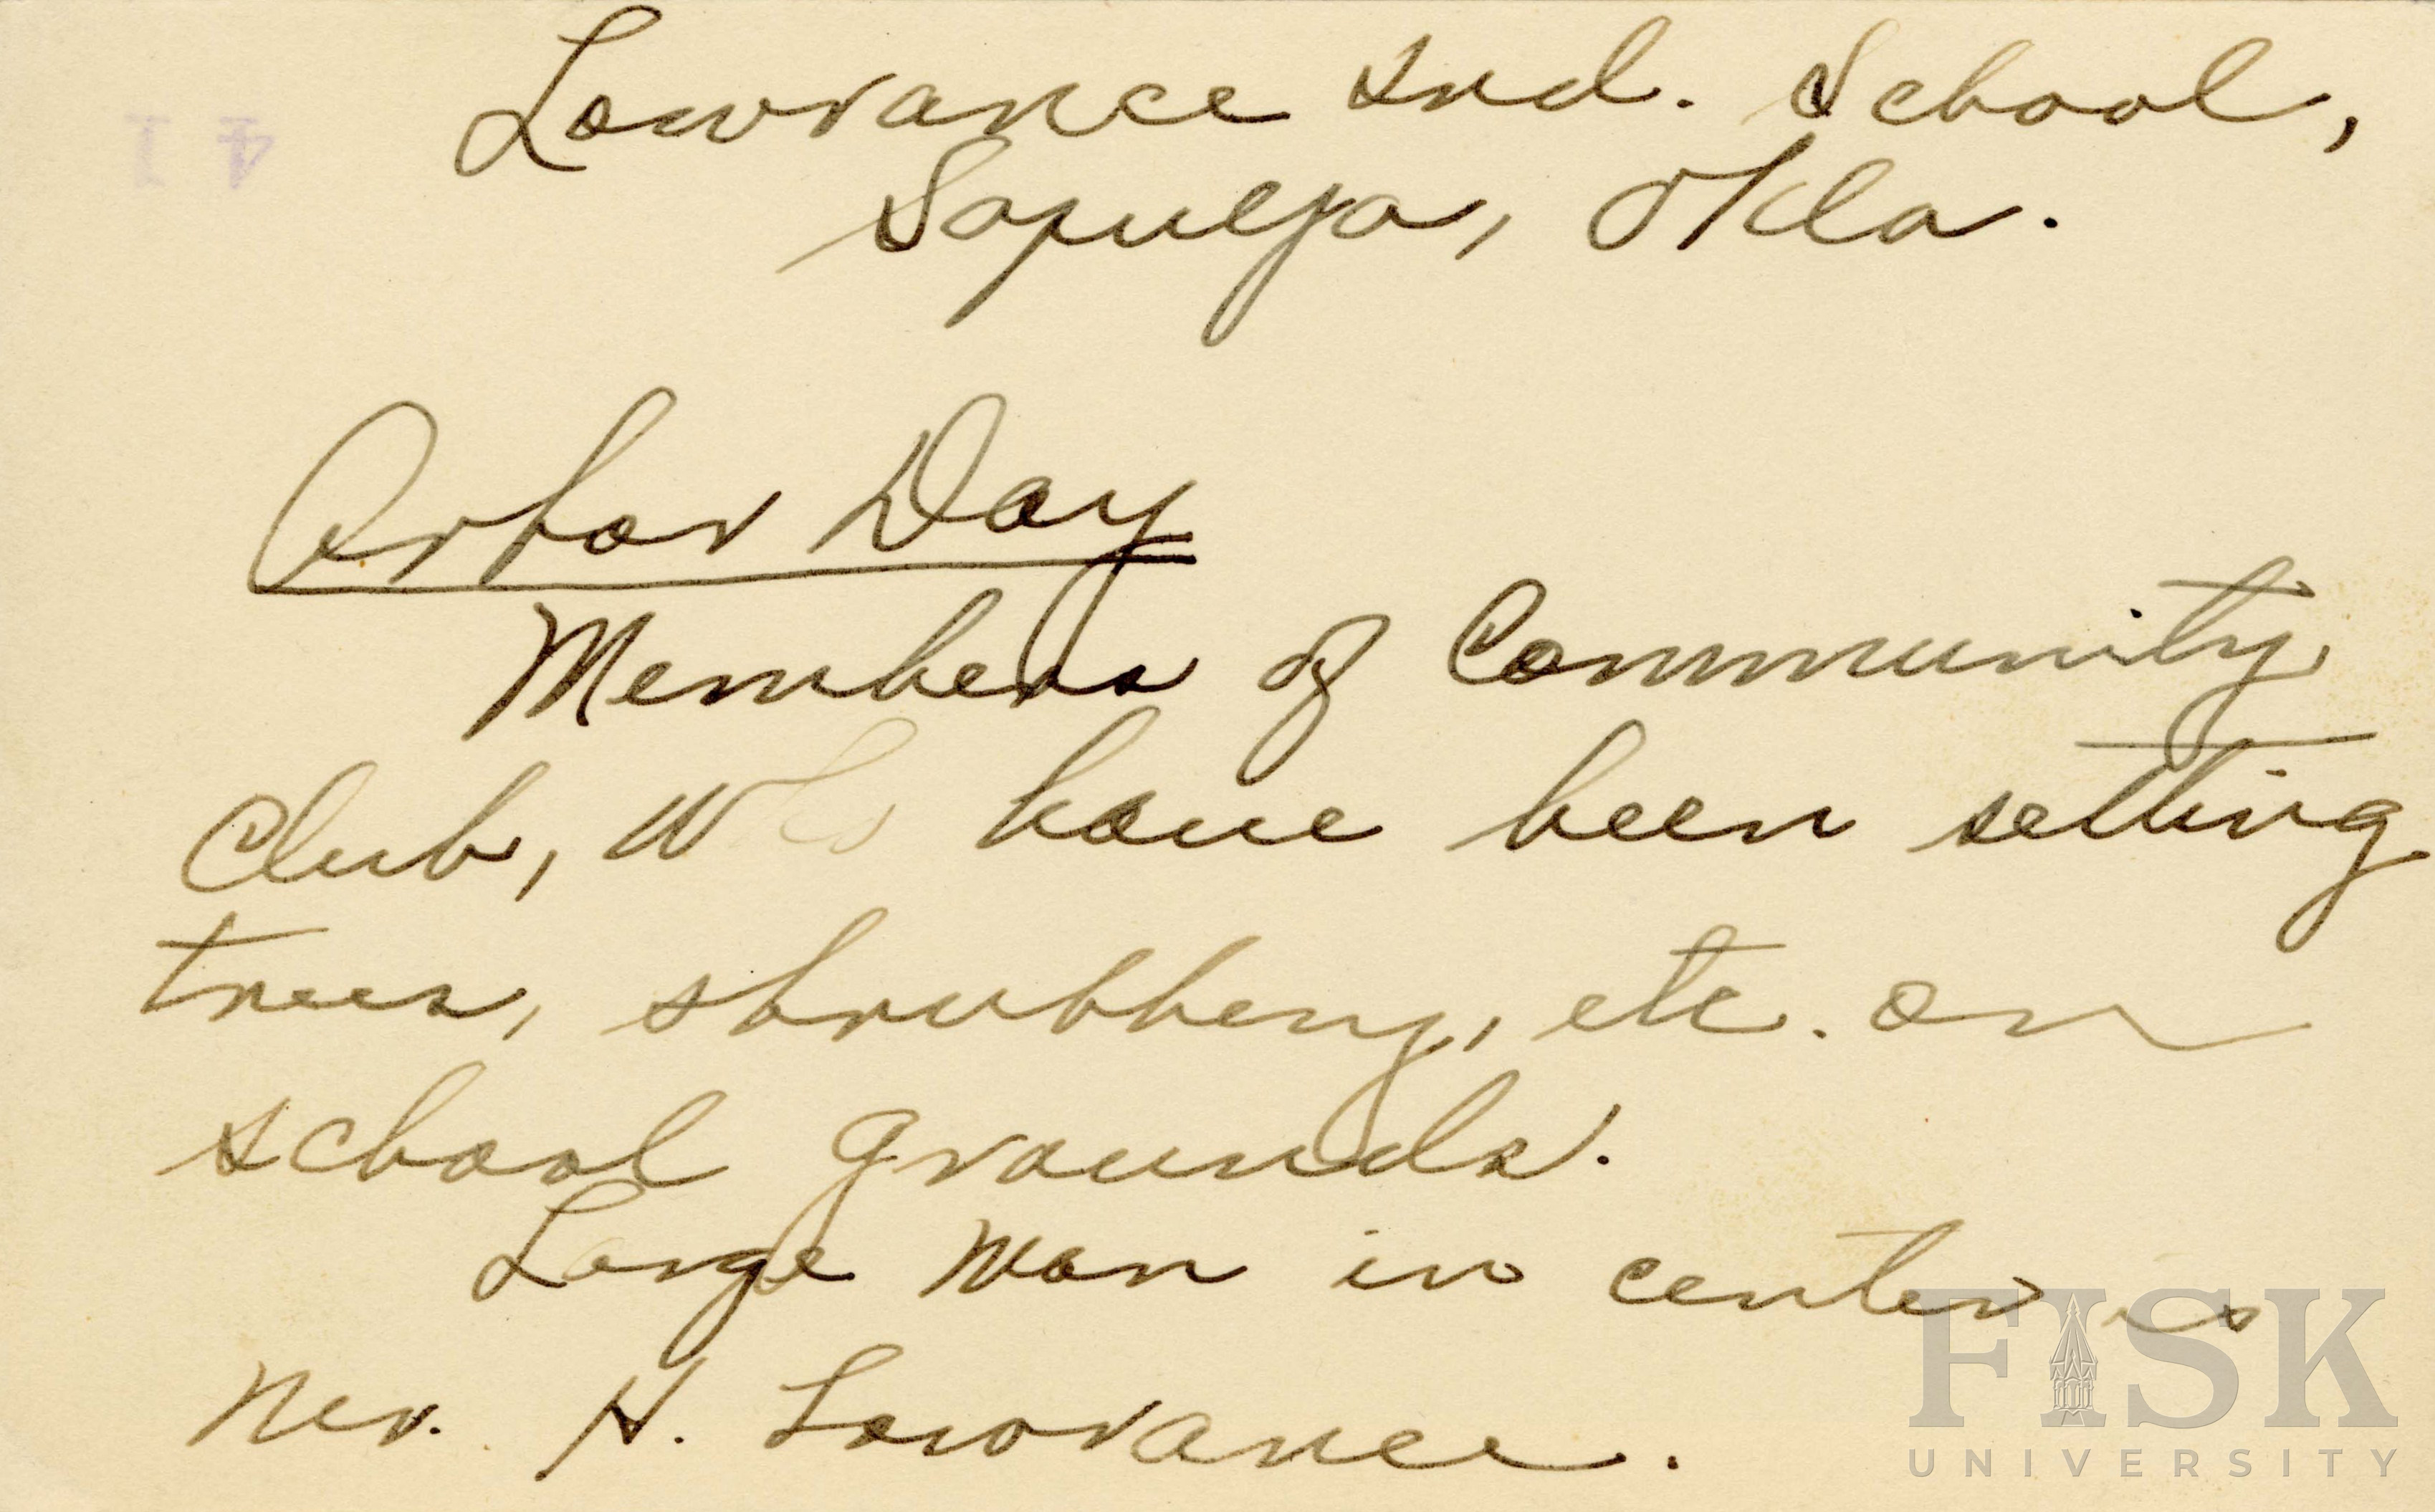 Lowrance Ind. School,
Sapulpa, Okla.
41
Arbor Day
Members of Community
Club, who have been setting
trees, shrubbery, etc. on
school grounds.
Large man in center is
Rev. H. Lowrance.
FISK
UNIVERSITY